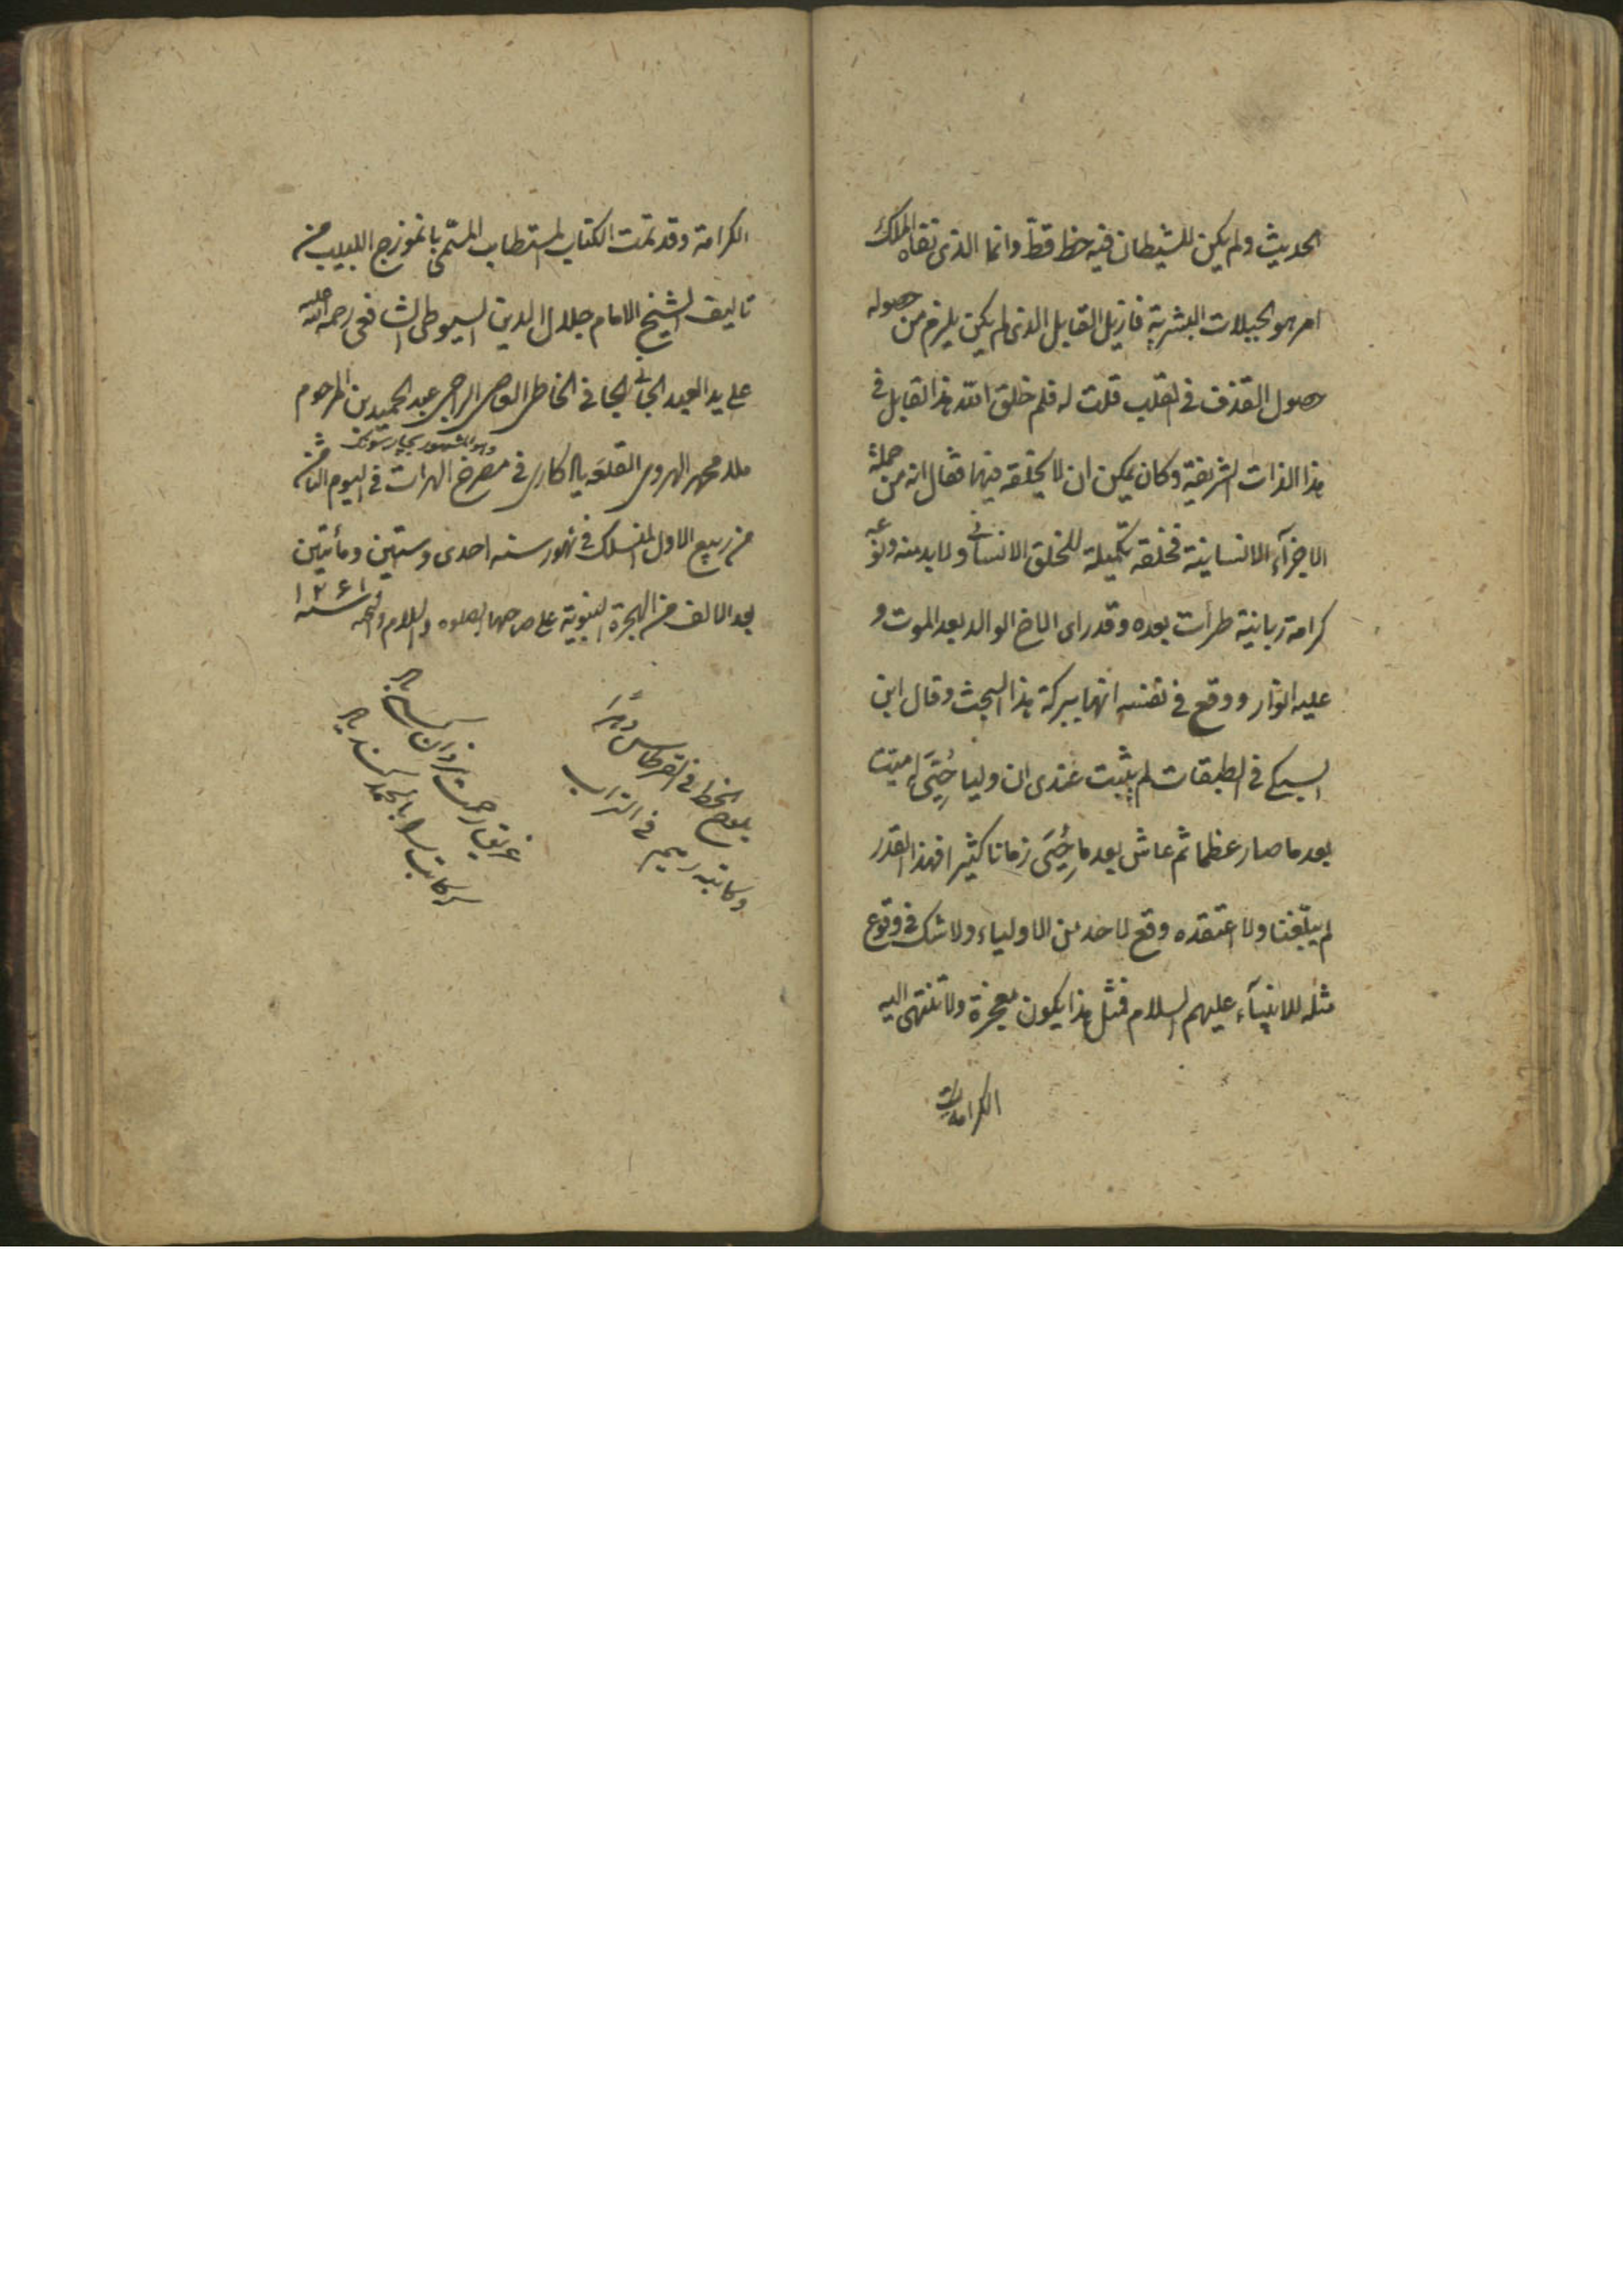 الحديث ولم يكن للشيطان فيه حظ قط وانما الذى نفاه الملك
امر هو الجبلات البشرية فازيل القابل الذى لم يكن يلزم من حصوله
حصول القذف فى القلب قلت له فلم خلق الله هذا القابل فى
هذا الذات الشريفة وكان يمكن ان لا يخلقه فيها فقال انه من جملة
الاجزآء الانسانية فخلقه تكميلة للخلق الانسانى ولا بد منه ونزعه
كرامة ربانية طرأت بعده وقد راى الاخ الوالد بعد الموت و
عليه انوار ووقع فى نفسه انها ببركة هذا البحث وقال ابن
السبكى فى الطبقات لم يثبت عندى ان وليا حُيِىَ له ميت
بعد ما صار عظما ثم عاش بعد ما حُيِىَ زمانا كثيرا فهذا القدر
لم يبلغنا ولا اعتقده وقع لاحد من الاولياء ولا شك فى وقوع
مثله للانبيآء عليهم السلام فمثل هذا يكون معجزة ولا تنتهى اليه
الكرامة
الكرامة وقد تمت الكتاب المستطاب المسمى بانموزج اللبيب من
تاليف الشيخ الامام جلال الدين السيوطى الشافعى رحمه الله عليه
على يد العبد الجانى الجافى الخاطى العاصى الراجى عبد الحميد بن المرحوم
ملا محمد الهروى القلعه فى مصرخ الهرات فى اليوم الثامن
وهو المشهور
من ربيع الاول المنسلك فى شهور سنه احدى وستين ومأتين
بعد الالف من الهجرة النبوية على صاحبها الصلوه والسلام والتحيه سنه ١٢٦١
يلوح الخط فى القرطاس دهرا
وكاتبه رميم فى التراب
غريق رحمت يزدان كسى باد
كه كاتب را بالحمد كند ياد